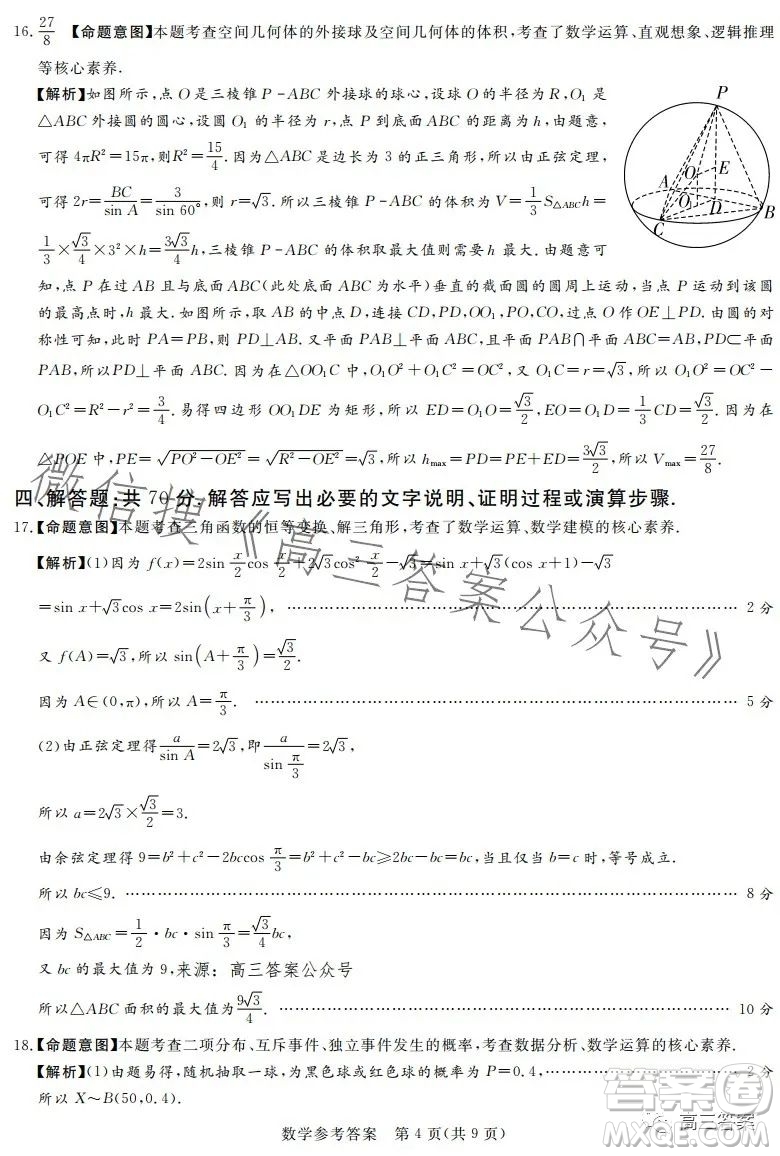 16. 27/8 【命题意图】本题考查空间几何体的外接球及空间几何体的体积,考查了数学运算、直观想象、逻辑推理
等核心素养.
【解析】如图所示,点 O 是三棱锥 P－ABC 外接球的球心,设球 O 的半径为 R,O₁ 是
△ABC 外接圆的圆心,设圆 O₁ 的半径为 r,点 P 到底面 ABC 的距离为 h,由题意,
可得 4πR²=15π,则R²=15/4. 因为△ABC 是边长为 3 的正三角形,所以由正弦定理,
可得 2r=BC/sin A=3/sin 60°,则 r=√3. 所以三棱锥 P－ABC 的体积为 V=1/3 S△ABC h=
1/3×√3/4×3²×h=3√3/4 h,三棱锥 P－ABC 的体积取最大值则需要 h 最大. 由题意可
知,点 P 在过 AB 且与底面 ABC(此处底面 ABC 为水平)垂直的截面圆的圆周上运动,当点 P 运动到该圆
的最高点时,h 最大. 如图所示,取 AB 的中点 D,连接 CD,PD,OO₁,PO,CO,过点 O 作 OE⊥PD. 由圆的对
称性可知,此时 PA=PB,则 PD⊥AB. 又平面 PAB⊥平面 ABC,且平面 PAB∩平面 ABC=AB,PD⊂平面
PAB,所以PD⊥平面 ABC. 因为在△OO₁C 中,O₁O²+O₁C²=OC²,又 O₁C=r=√3,所以 O₁O²=OC²－
O₁C²=R²－r²=3/4. 易得四边形 OO₁DE 为矩形,所以 ED=O₁O=√3/2,EO=O₁D=1/3 CD=√3/2. 因为在
△POE 中,PE=√(PO²－OE²)=√(R²－OE²)=√3,所以 hmax=PD=PE+ED=3√3/2,所以 Vmax=27/8.
P
A
O
E
O₁
D
B
C
四、解答题:共 70 分. 解答应写出必要的文字说明、证明过程或演算步骤.
17.【命题意图】本题考查三角函数的恒等变换、解三角形,考查了数学运算、数学建模的核心素养.
【解析】(1)因为 f(x)=2sin x/2 cos x/2+2√3cos² x/2－√3=sin x+√3(cos x+1)－√3
=sin x+√3cos x=2sin(x+π/3), …… 2 分
又 f(A)=√3,所以 sin(A+π/3)=√3/2.
因为 A∈(0,π),所以 A=π/3. …… 5 分
(2)由正弦定理得 a/sin A=2√3,即 a/sin π/3=2√3,
所以 a=2√3×√3/2=3.
由余弦定理得 9=b²+c²－2bccos π/3=b²+c²－bc≥2bc－bc=bc,当且仅当 b=c 时,等号成立.
所以 bc≤9. …… 8 分
因为 S△ABC=1/2·bc·sin π/3=√3/4 bc,
又 bc 的最大值为 9,来源：高三答案公众号
所以△ABC 面积的最大值为9√3/4. …… 10 分
18.【命题意图】本题考查二项分布、互斥事件、独立事件发生的概率,考查数据分析、数学运算的核心素养.
【解析】(1)由题易得,随机抽取一球,为黑色球或红色球的概率为 P=0.4, …… 2 分
所以 X～B(50,0.4).
数学参考答案 第 4 页(共 9 页)
微信搜《高三答案公众号》
高三答案
答案圈
MXQE.COM